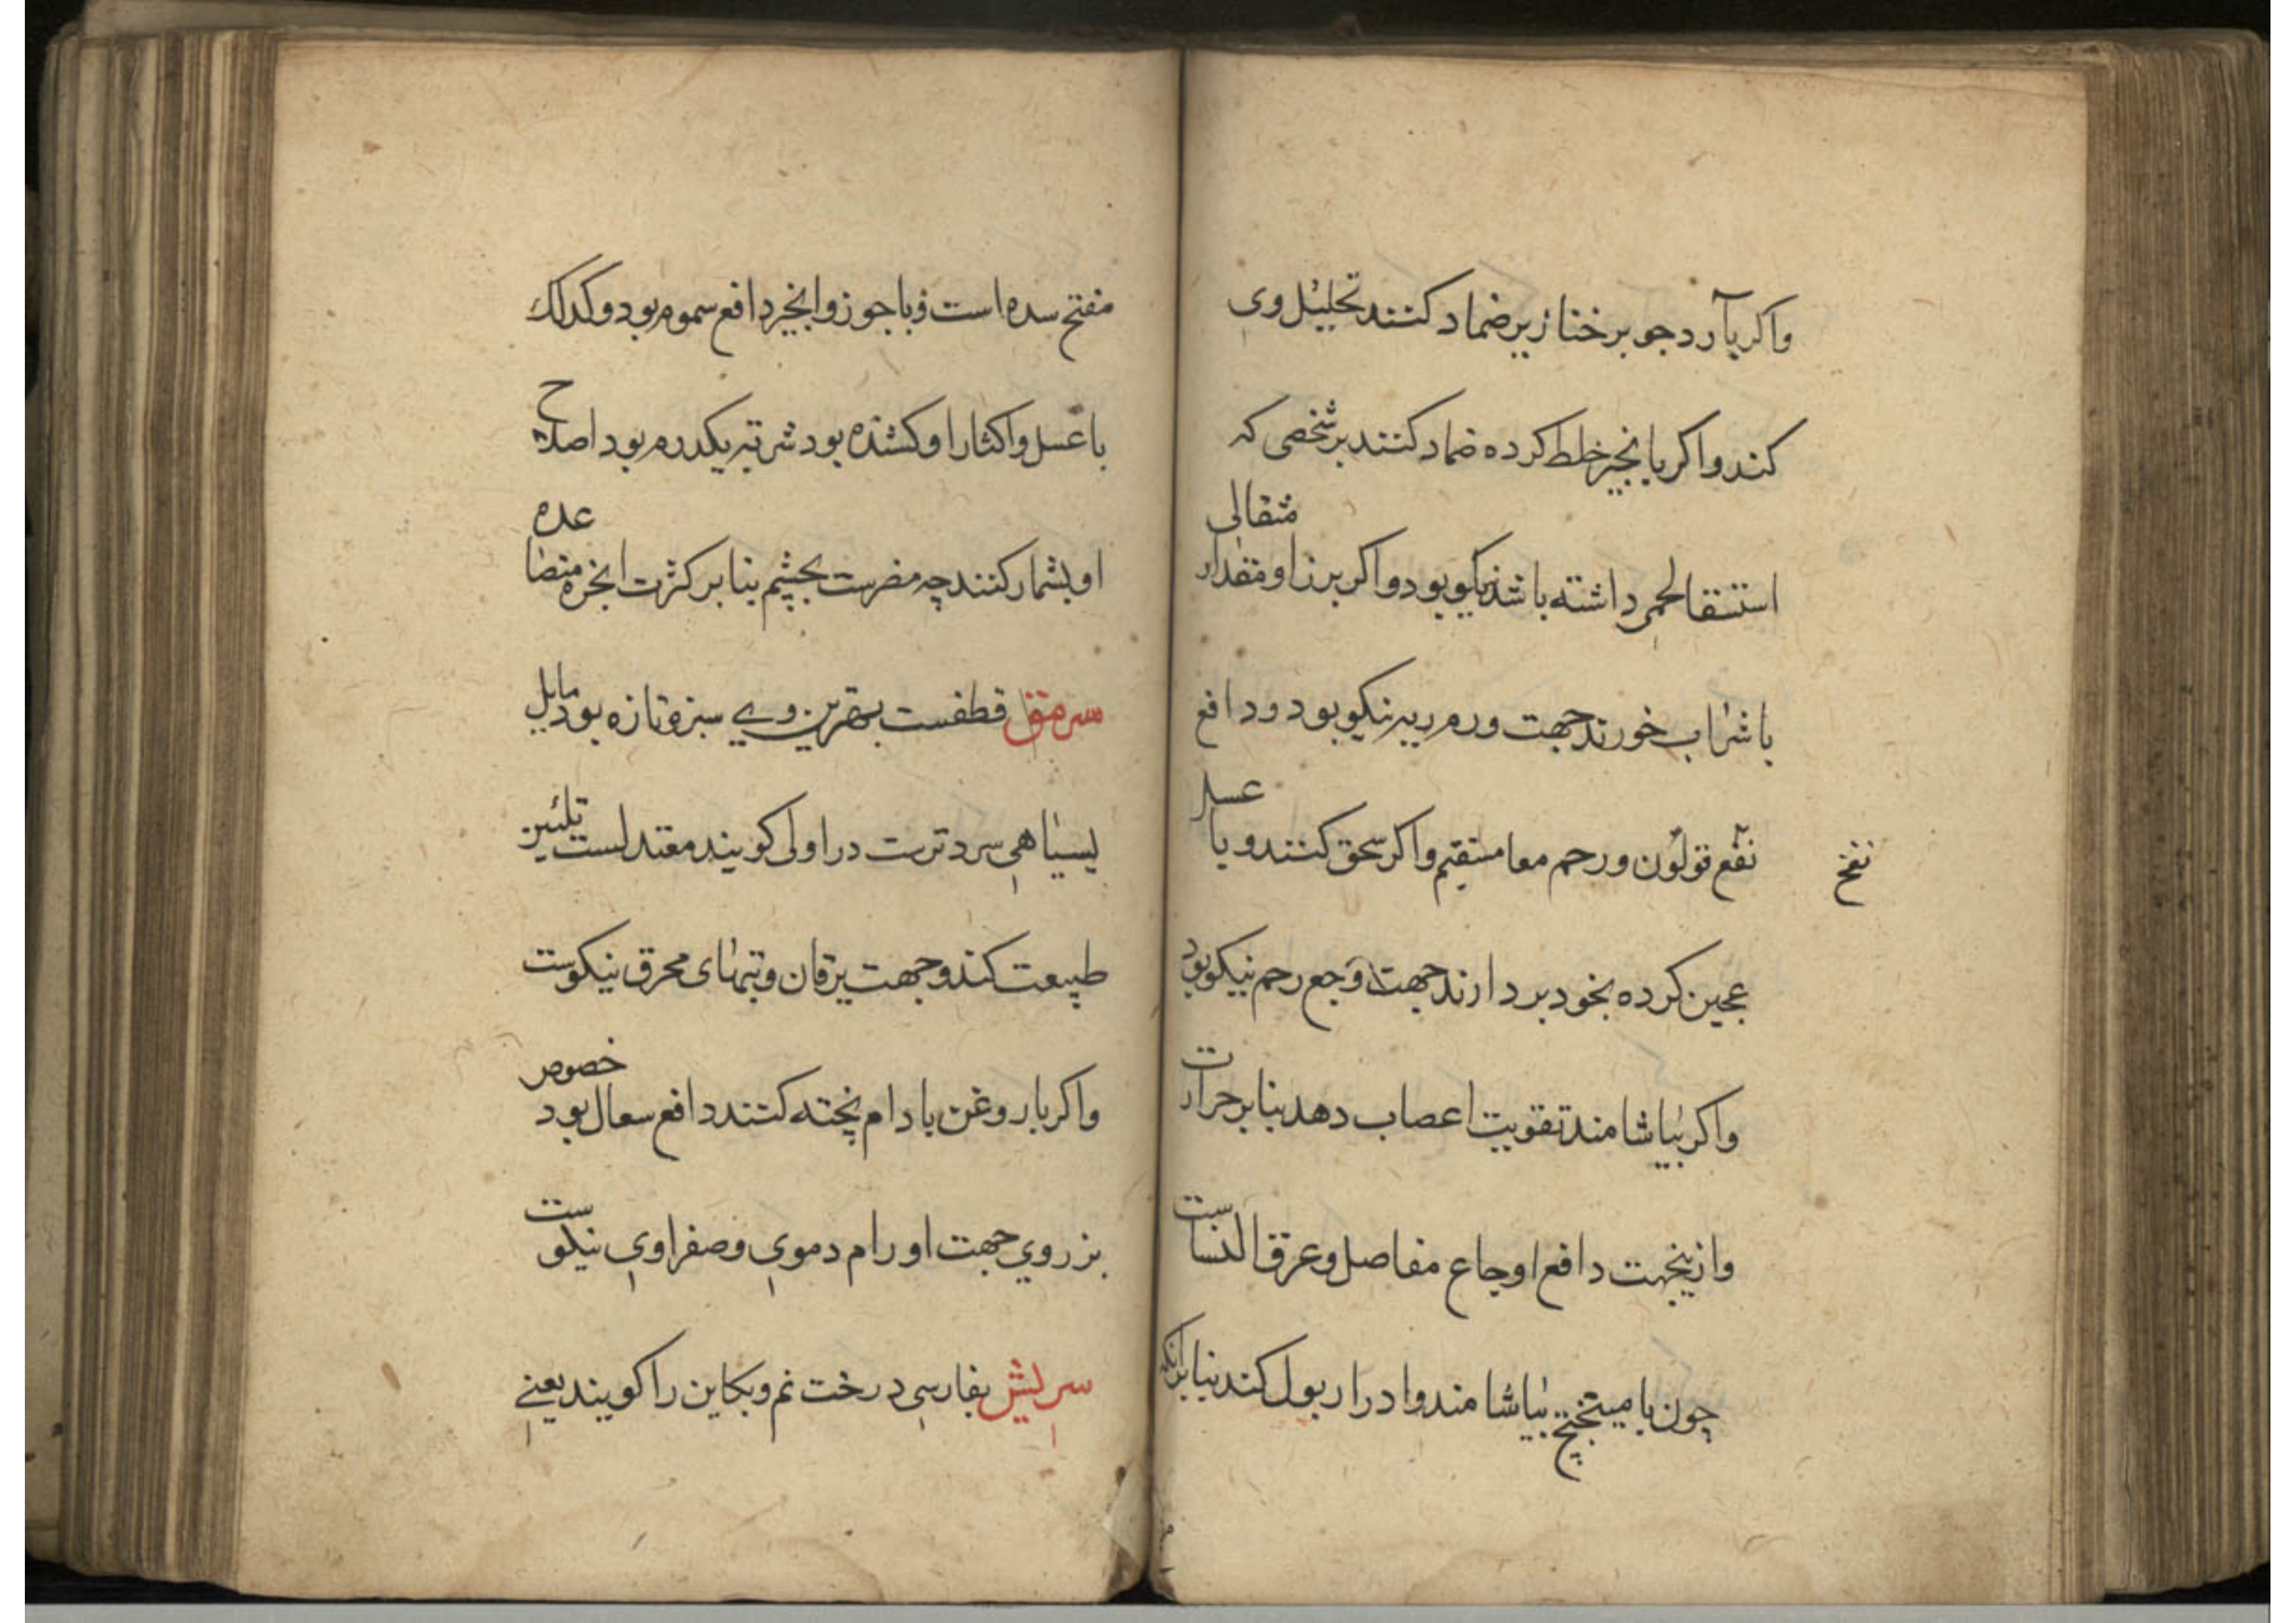 واکر بآرد جو بر خنازیر ضماد کنند تحلیل وی
کند واکر با نجیر خلط کرده ضماد کنند بر شخصی که
استسقا لحمی داشته باشد نیکو بود واکر برز او مقدار مثقالی
با شراب خورند جهت ورم ریه نیکو بود ودافع
نفع قولون ورحم معا مستقیم واکر سحق کنند وبا عسل
نفخ
عجین کرده بخود بردارند جهت وجع رحم نیکو بود
واکر بیاشامند تقویت اعصاب دهد بنا بر حرارت
وازینجهت دافع اوجاع مفاصل وعرق النساست
چون با میبختج بیاشامند وادرار بول کند بنا برانکه
مفتح سده است وبا جوز وانجیر دافع سموم بود وکذلک
با عسل واکثار او کشنده بود شربته یکدرم بود اصلاح
او بشمار کنند چه مضرست بچشم بنا بر کثرت ابخره متصاعده
سرمق قطفست بهترین وی سبز وتازه بود مایل
بسیاهی سرد ترست در اولی کویند معتدلست تلیین
طبیعت کند وجهت یرقان وتبهای محرق نیکوست
واکر با روغن بادام پخته کنند دافع سعال بود خصوص
بزر وی جهت اورام دموی وصفراوی نیکوست
سرلیش بفارسی درخت نم وبکاین را کویند یعنی